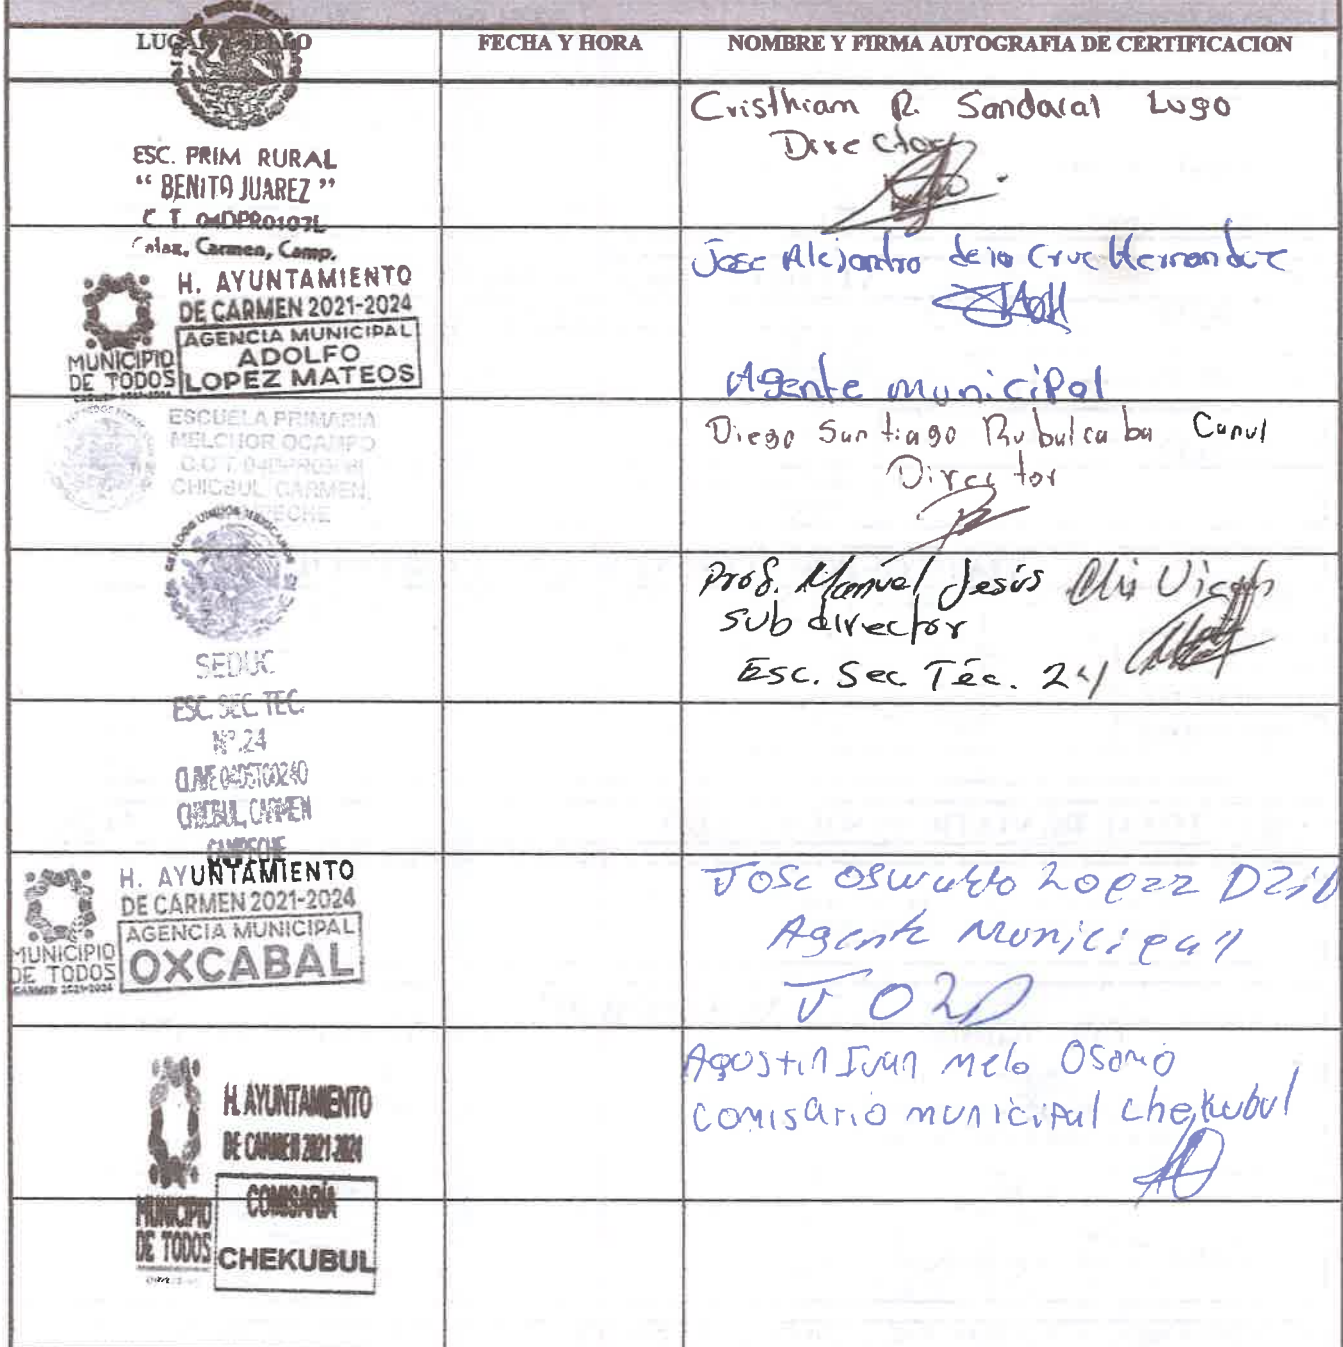 FECHA Y HORA
NOMBRE Y FIRMA AUTOGRAFIA DE CERTIFICACION
ESC. PRIM RURAL
“ BENITO JUAREZ ”
C. T. 04DPR0107L
Carmen, Camp.
Cristhiam R. Sandoval Lugo
Director
H. AYUNTAMIENTO
DE CARMEN 2021-2024
AGENCIA MUNICIPAL
ADOLFO
LOPEZ MATEOS
MUNICIPIO
DE TODOS
CARMEN 2021-2024
Jose Alejandro de la Cruz Hernandez
Agente municipal
ESCUELA PRIMARIA
MELCHOR OCAMPO
C.C.T.
CHICBUL, CARMEN,
Diego Santiago Rubulcaba Canul
Director
ESTADOS UNIDOS MEXICANOS
SEDUC
ESC. SEC. TEC.
Nº.24
CLAVE 04DST0024O
CHICBUL, CARMEN
CAMPECHE
Prof. Manuel Jesús
Sub director
Esc. Sec Téc. 24
H. AYUNTAMIENTO
DE CARMEN 2021-2024
AGENCIA MUNICIPAL
OXCABAL
MUNICIPIO
DE TODOS
CARMEN 2021-2024
Jose Oswaldo Lopez Dzib
Agente Municipal
JOLD
H. AYUNTAMIENTO
DE CARMEN 2021-2024
COMISARÍA
CHEKUBUL
MUNICIPIO
DE TODOS
Agostin Ivan Melo Osorio
Comisario municipal Chekubul